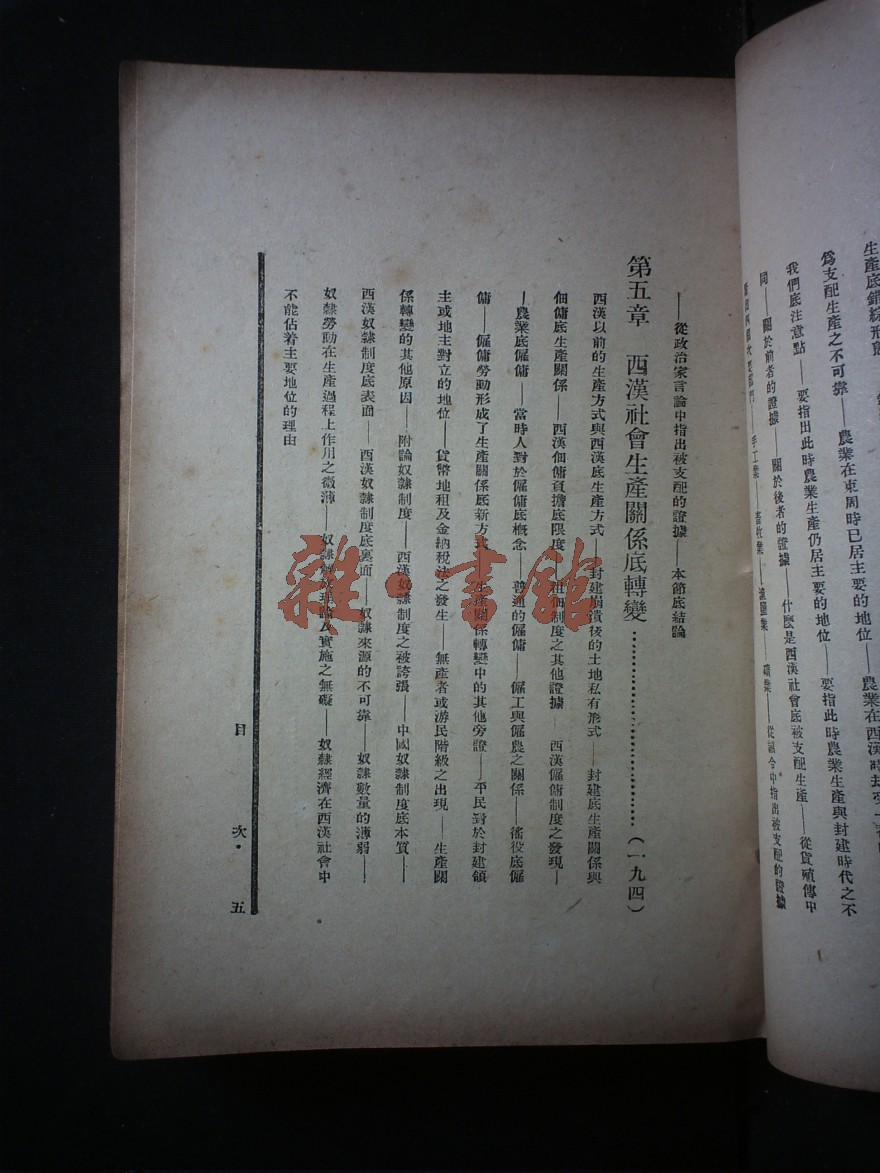 生產底錯綜形態
爲支配生產之不可靠——農業在東周時已居主要的地位——農業在西漢時
我們底注意點——要指出此時農業生產仍居主要的地位——要指此時農業生產與封建時代之不
同——關於前者的證據——關於後者的證據——什麼是西漢社會底被支配生產——從貨殖傳中
手工業——畜牧業——鑛業——從詔令中指出被支配的證據
——從政治家言論中指出被支配的證據——本節底結論
第五章　西漢社會生產關係底轉變……………………（一九四）
西漢以前的生產方式與西漢底生產方式——封建崩潰後的土地私有形式——封建底生產關係與
佃傭底生產關係——西漢佃傭負擔底限度——租佃制度之其他證據——西漢僱傭制度之發現—
—農業底僱傭——當時人對於僱傭底概念——普通的僱傭——傭工與僱農之關係——徭役底僱
傭——僱傭勞動形成了生產關係底新方式——生產關係轉變中的其他旁證——平民對於封建領
主或地主對立的地位——貨幣地租及金納稅法之發生——無產者或游民階級之出現——生產關
係轉變的其他原因——附論奴隸制度——西漢奴隸制度之被誇張——中國奴隸制度底本質——
西漢奴隸制度底表面——西漢奴隸制度底裏面——奴隸來源的不可靠——奴隸數量的薄弱——
奴隸勞動在生產過程上作用之微薄——奴隸解放理論及實施之無礙——奴隸經濟在西漢社會中
不能佔着主要地位的理由
目　次　五
雜·書館